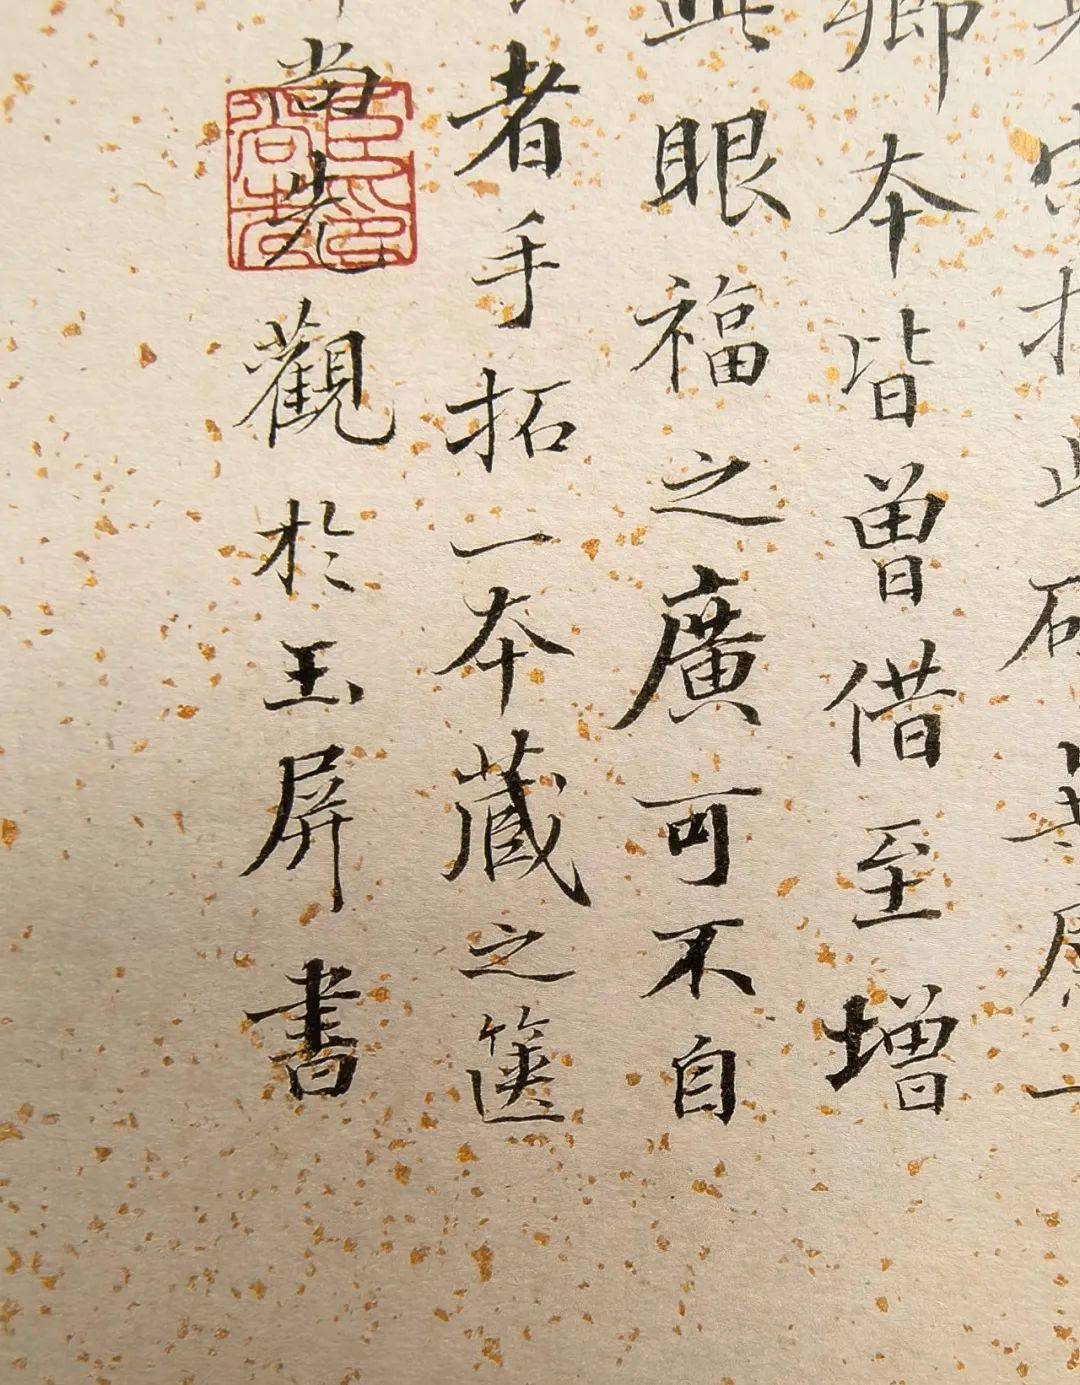 拓此硯
卿本皆曾借至增
眼福之廣可不自
者手拓一本藏之篋
尚先觀於玉屏書